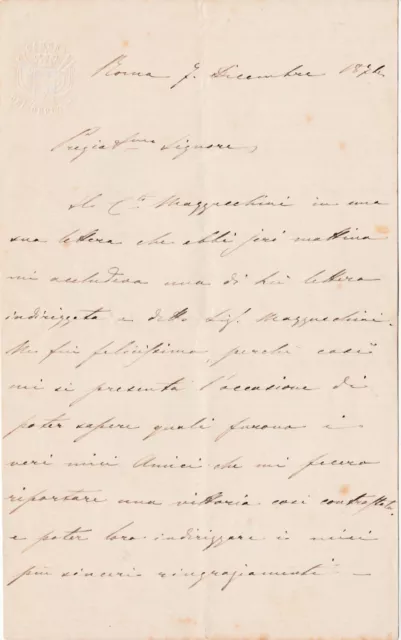 Roma 7. Decembre 187
Pregiatmo Signore,
Il Cte Mazzucchini in una
sua lettera che ebbi jeri mattina
mi accludeva una di Lei lettera
indirizzata a detto Sigr Mazzucchini.
Ne fui felicissimo, perchè così
mi si presenta l'occasione di
poter sapere quali furono i
veri miei Amici che mi fecero
riportare una vittoria così contrastata,
e poter loro indirizzare i miei
più sinceri ringraziamenti —